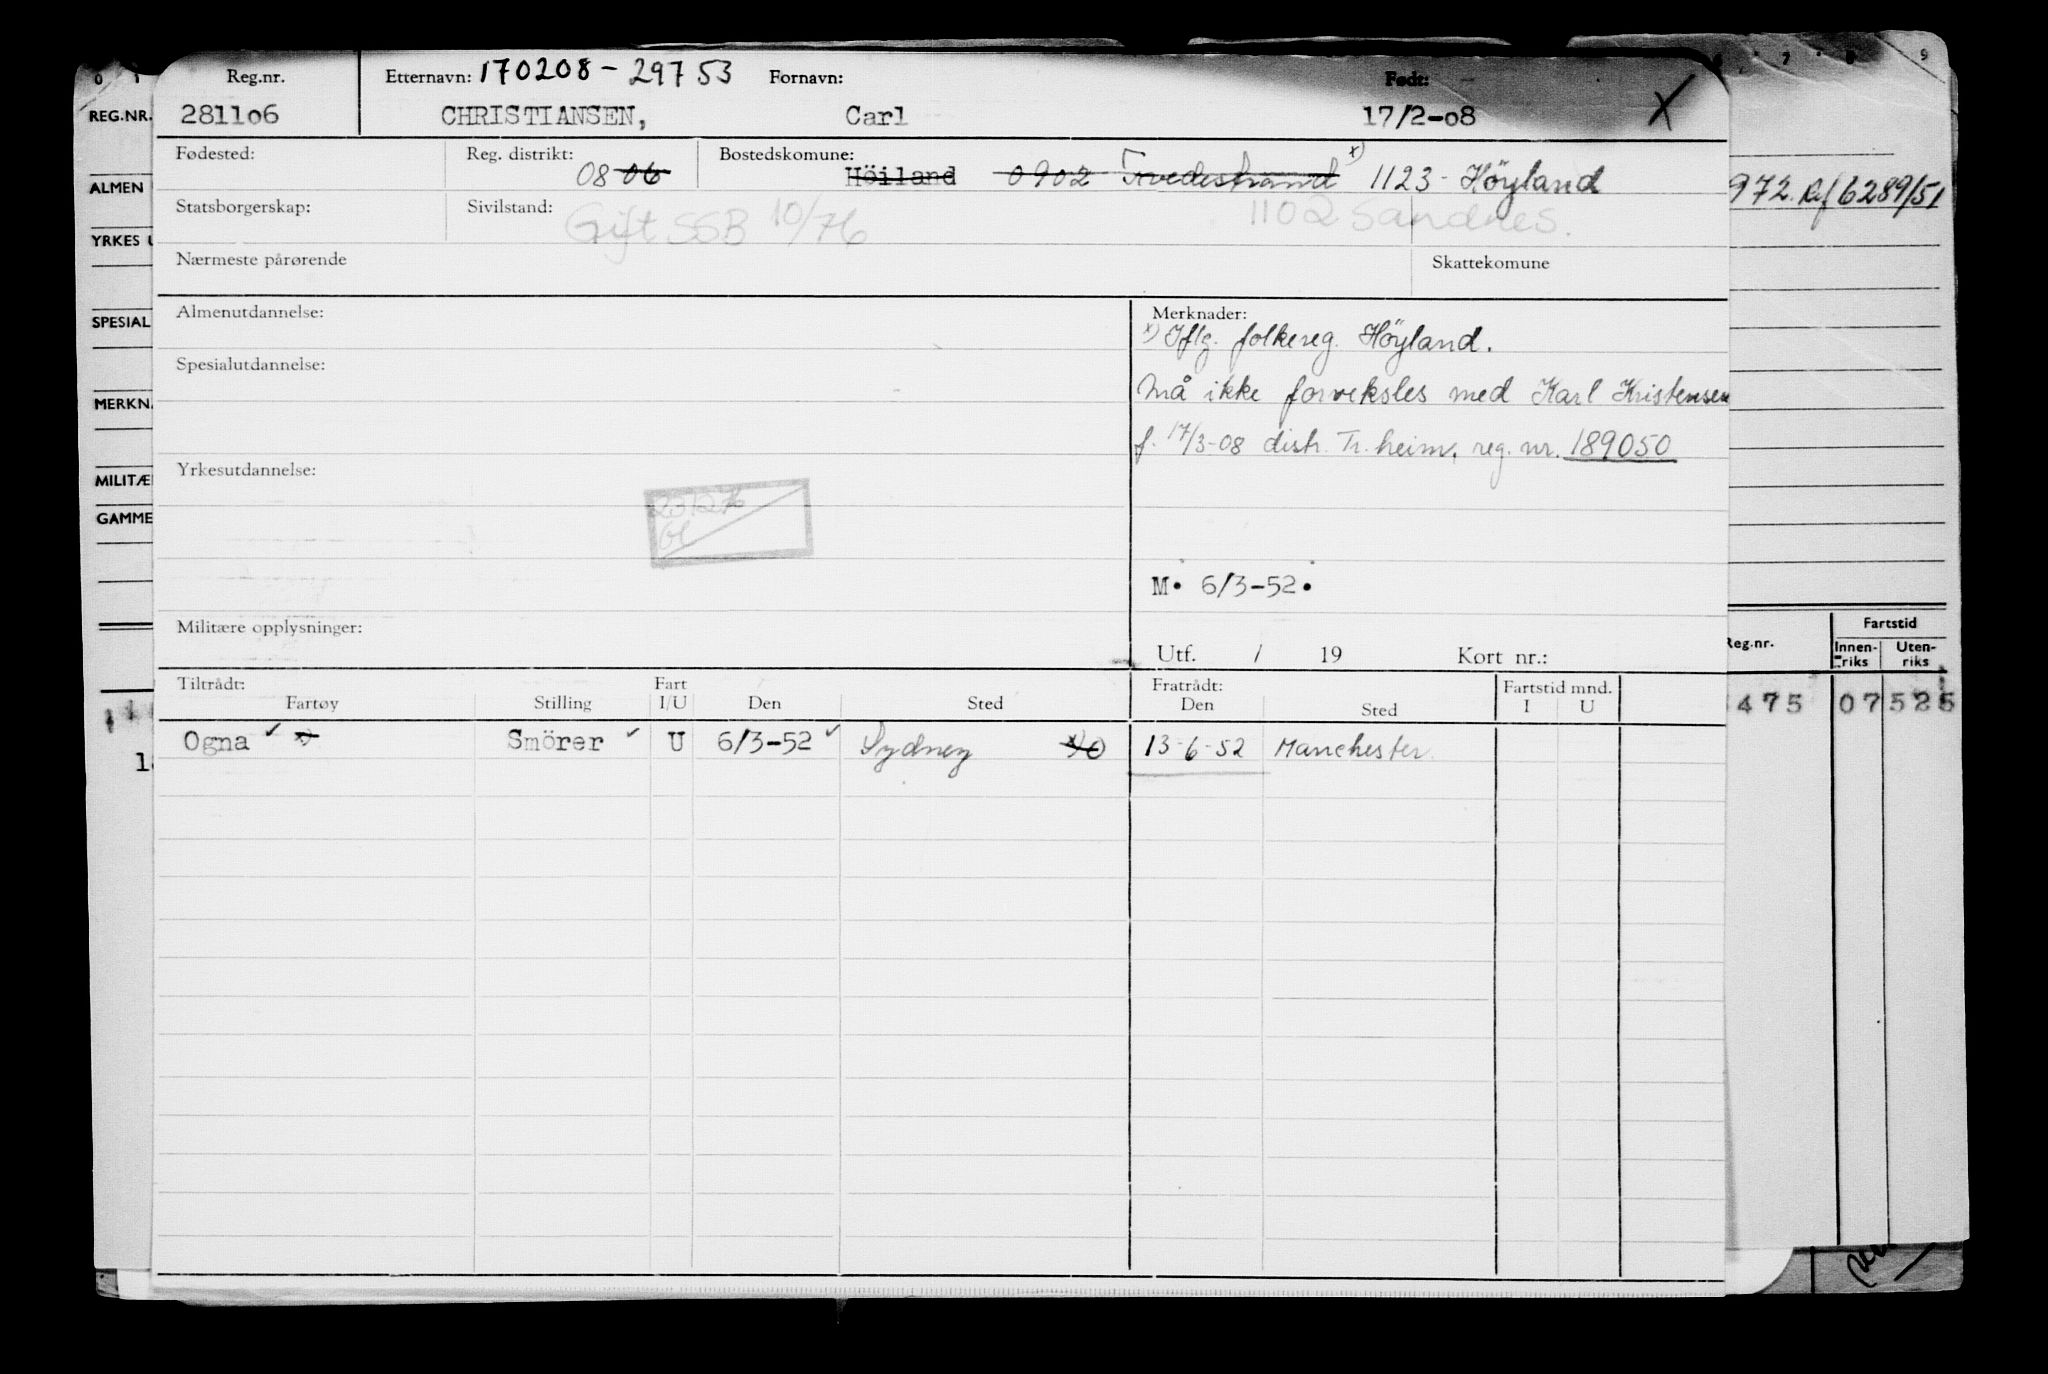 Reg.nr. Etternavn: 170208-29753 Fornavn: Født:
281106 CHRISTIANSEN, Carl 17/2-08 X
Fødested: Reg. distrikt: 08 06 Bostedskomune: Höiland 0902 Tvedestrand x) 1123 - Höyland
Statsborgerskap: Sivilstand: Gift SSB 10/76 1102 Sandnes.
Nærmeste pårørende Skattekomune
Almenutdannelse: Merknader:
x) Iflg. folkereg. Höyland.
Spesialutdannelse:
Må ikke forveksles med Karl Kristensen
f. 17/3-08 distr. Tr.heim, reg. nr. 189050
Yrkesutdannelse:
M. 6/3-52.
Militære opplysninger:
Utf. / 19 Kort nr.:
Tiltrådt: Fart Fratrådt: Fartstid mnd.
Fartøy Stilling I/U Den Sted Den Sted I U
Ogna ✓ x) Smörer ✓ U 6/3-52 ✓ Sydney 13-6-52 Manchester.
0 1
REG.NR.
ALMEN
YRKES U
SPESIAL
MERKNA
MILITÆ
GAMME
7 8 9
972. Ref 6289/51
Reg.nr. Fartstid
Innen-riks Uten-riks
475 07 525